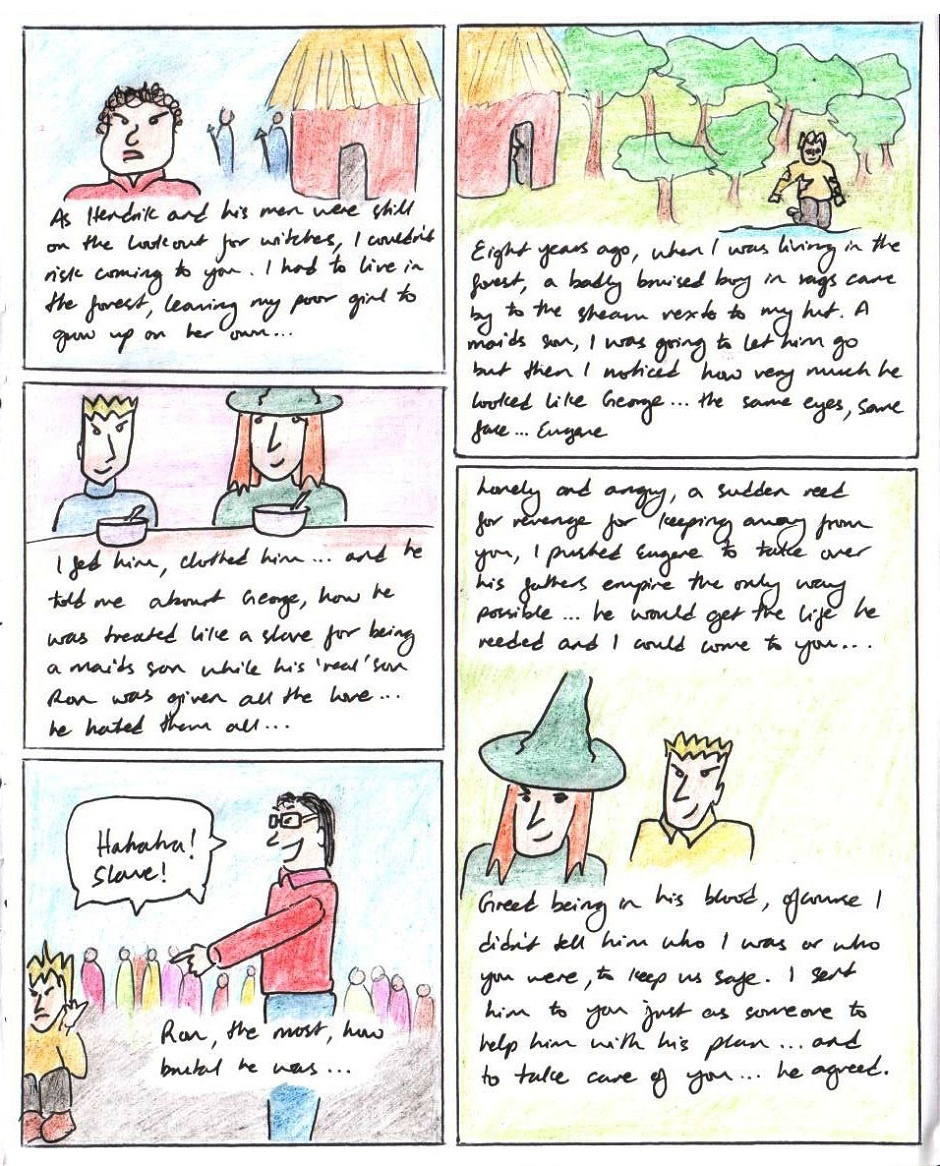 As Hendrik and his men were still
on the lookout for witches, I couldn't
risk coming to you. I had to live in
the forest, leaving my poor girl to
grow up on her own...
Eight years ago, when I was living in the
forest, a badly bruised boy in rags came
by to the stream nexto to my hut. A
maids son, I was going to let him go
but then I noticed how very much he
looked like George... the same eyes, same
face... Eugene
I fed him, clothed him... and he
told me about George, how he
was treated like a slave for being
a maids son while his 'real' son
Ron was given all the love...
he hated them all...
Hahaha!
Slave!
Ron, the most, how
brutal he was...
Lonely and angry, a sudden need
for revenge for keeping away from
you, I pushed Eugene to take over
his fathers empire the only way
possible... he would get the life he
needed and I could come to you...
Greed being in his blood, ofcourse I
didn't tell him who I was or who
you were, to keep us safe. I sent
him to you just as someone to
help him with his plan... and
to take care of you... he agreed.